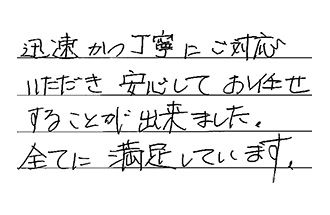 迅速かつ丁寧にご対応
いただき 安心して お任せ
することが出来ました。
全てに 満足しています。